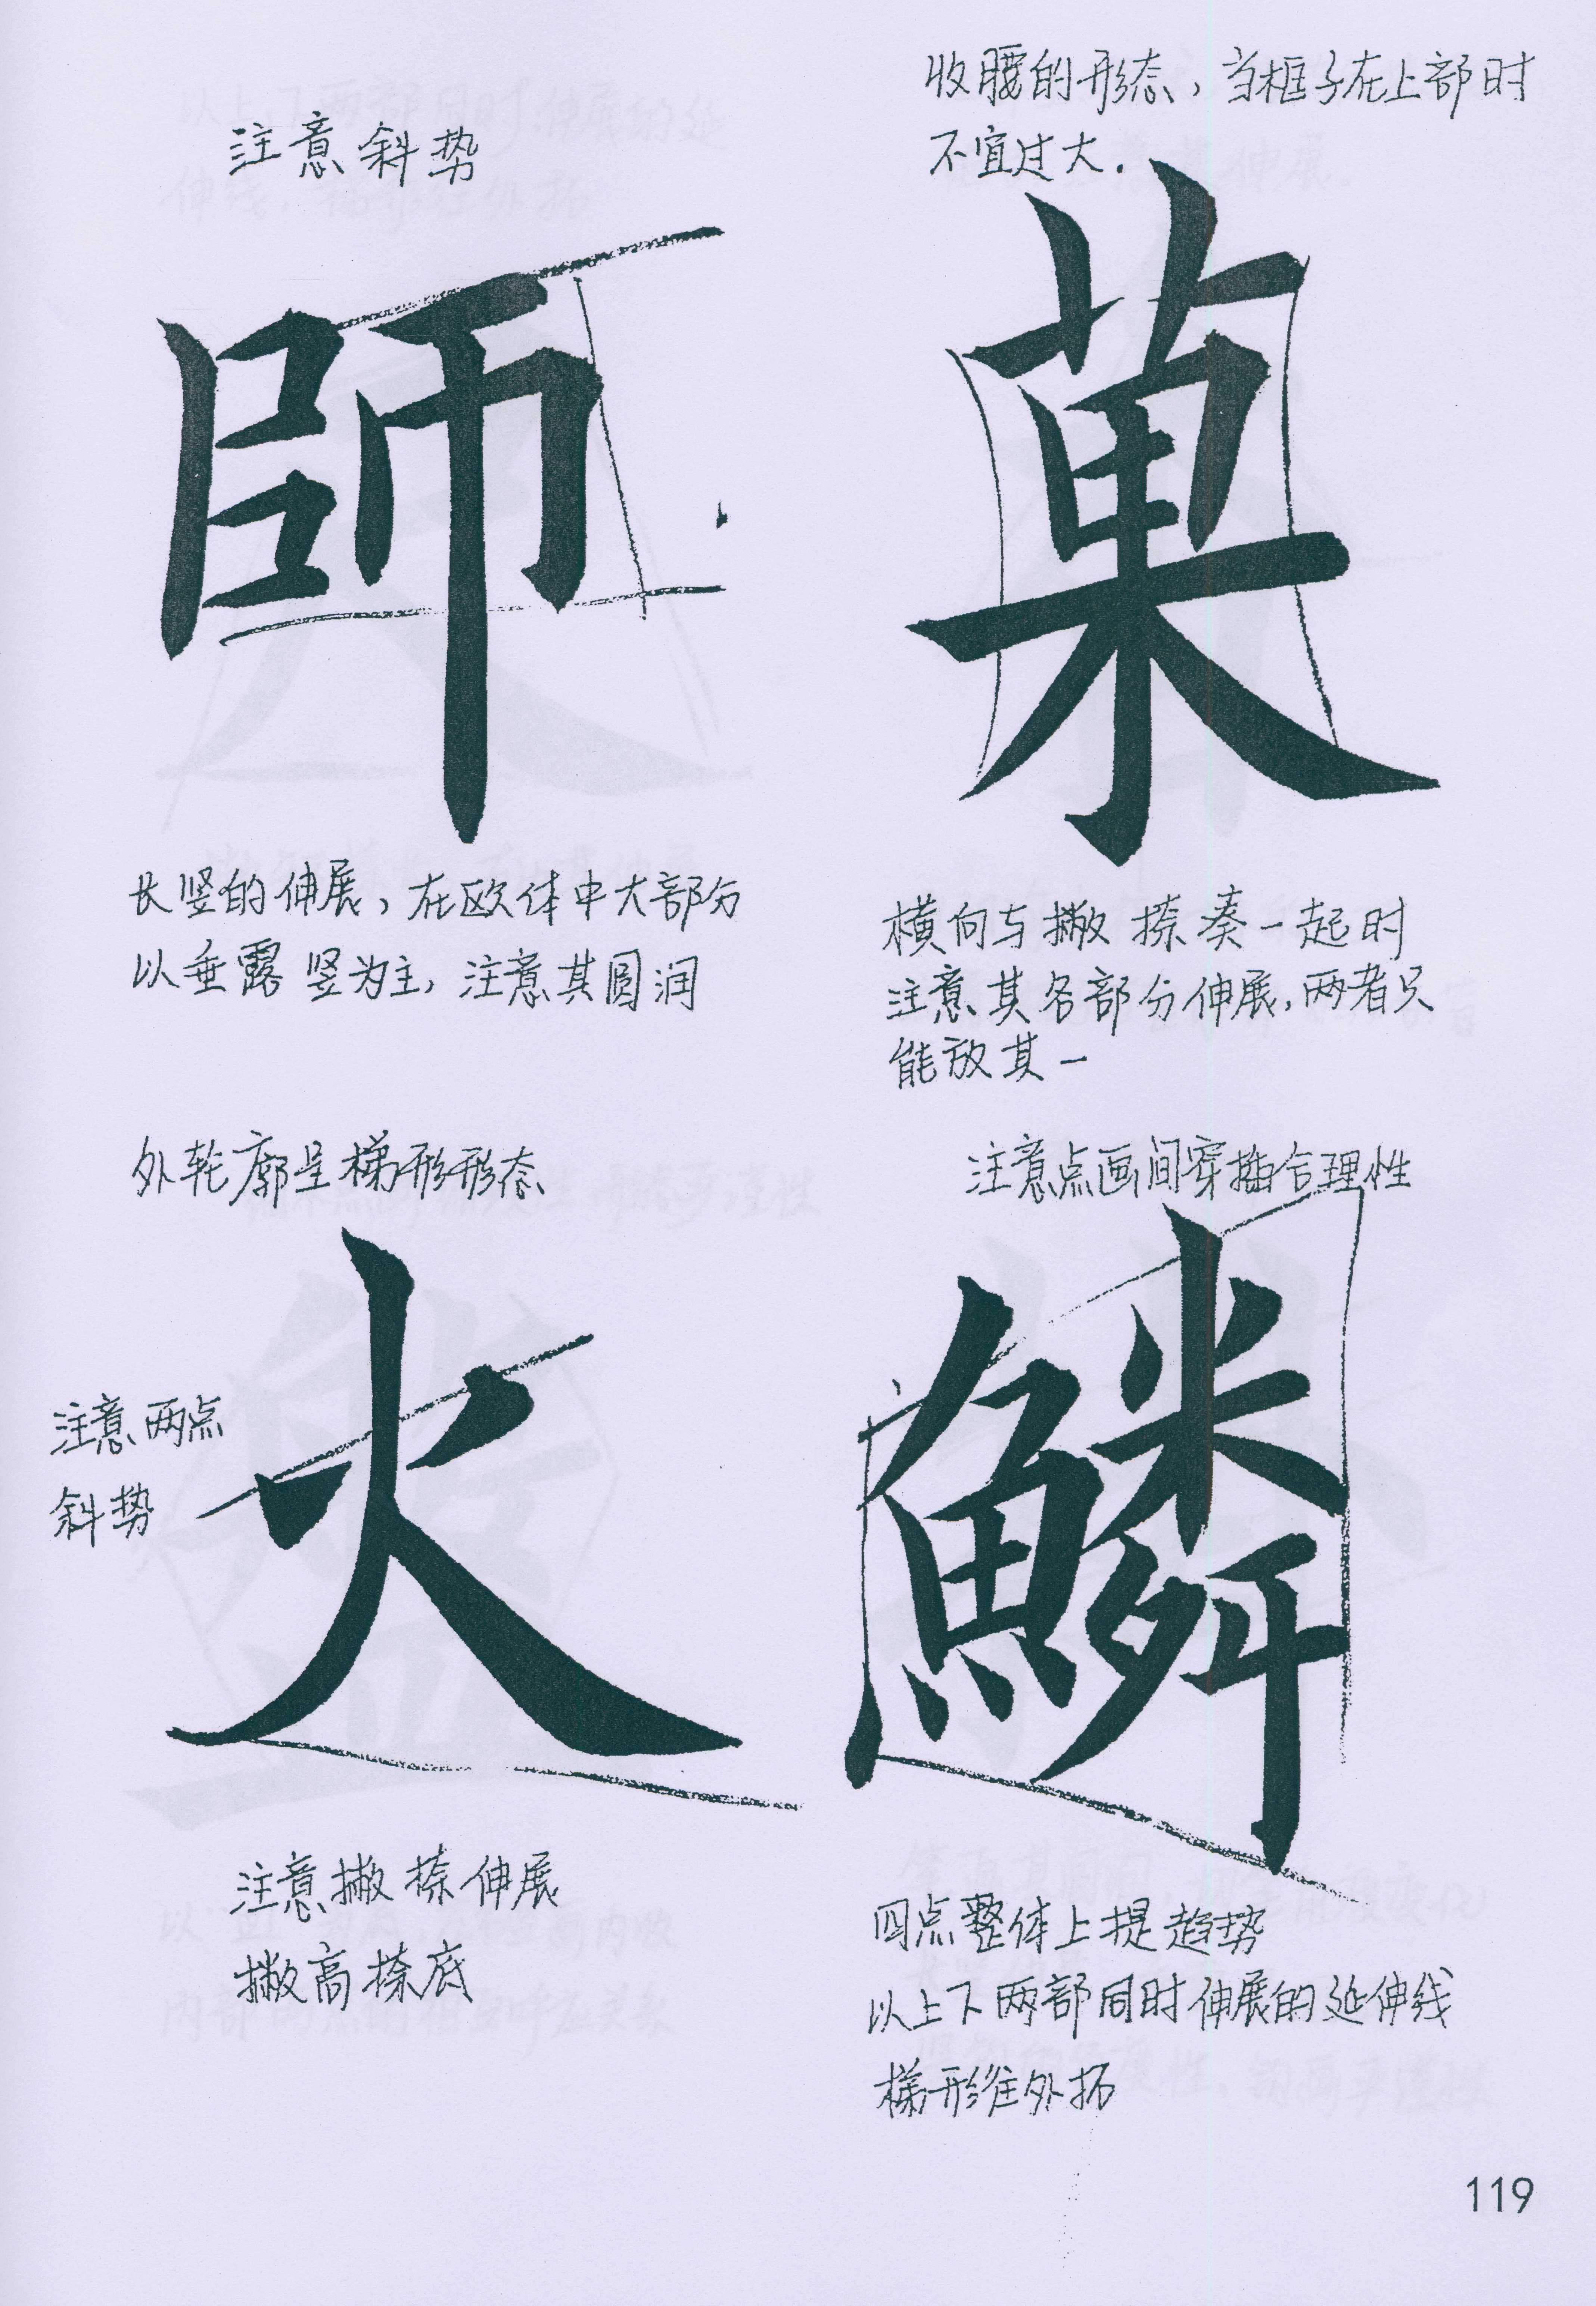 注意斜势
師
长竖的伸展，在欧体中大部分
以垂露竖为主，注意其圆润
收腰的形态，当框子在上部时
不宜过大.
菓
横向与撇捺凑一起时
注意其各部分伸展，两者只
能放其一
外轮廓呈梯形形态
注意两点
斜势
火
注意撇捺伸展
撇高捺底
注意点画间穿插合理性
鳞
四点整体上提趋势
以上下两部同时伸展的延伸线
梯形往外拓
119